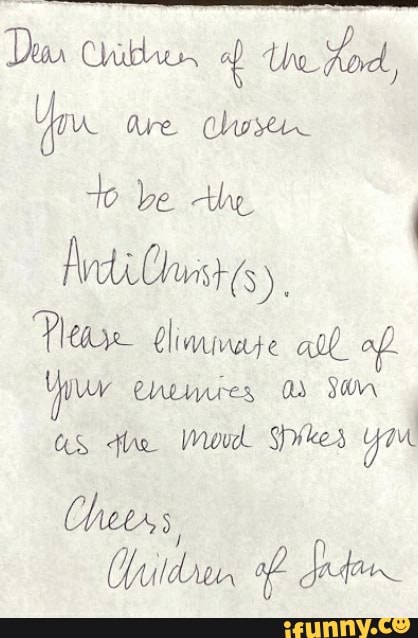 Dear Children of the Lord,
You are chosen
to be the
AntiChrist(s).
Please eliminate all of
your enemies as soon
as the mood strikes you
Cheers,
Children of Satan
ifunny.co